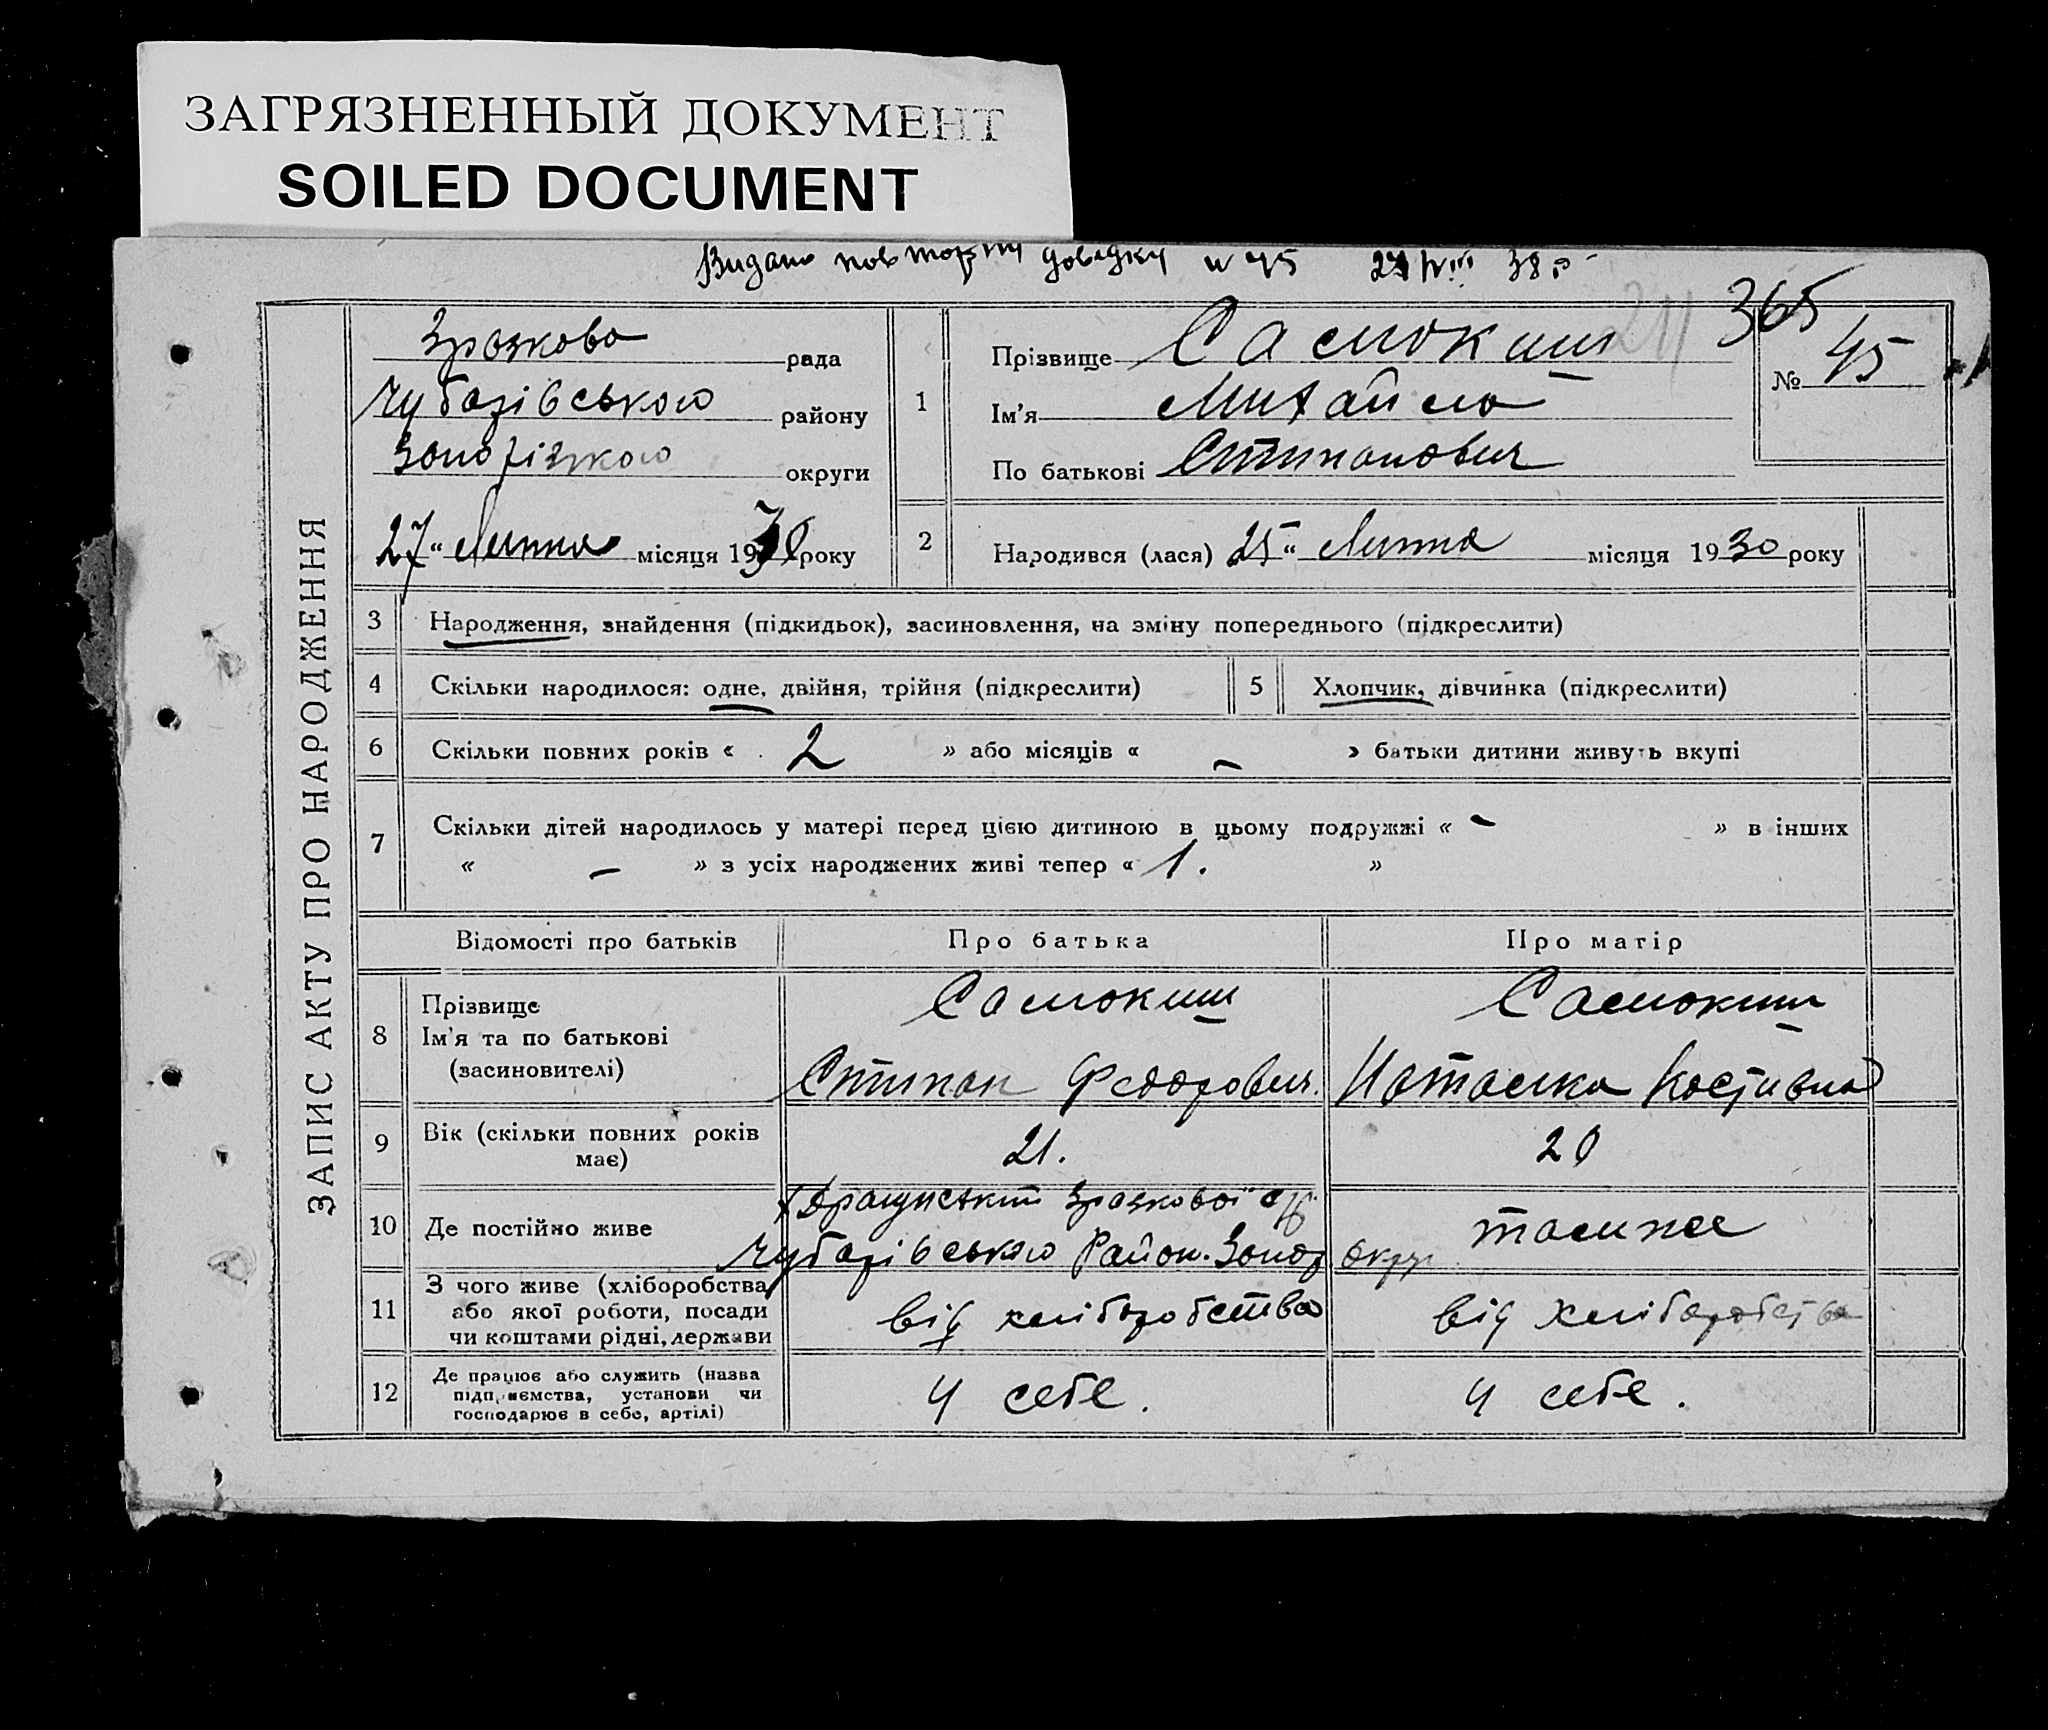 ЗАГРЯЗНЕННЫЙ ДОКУМЕНТ
SOILED DOCUMENT
Видано повторну довідку N 45 38 р
365
211
ЗАПИС АКТУ ПРО НАРОДЖЕННЯ
Зразкова рада
Чубарівського району
Запорізького округи
27 " Липня місяця 1930 року
1
Прізвище Самокиш
Ім'я Михайло
По батькові Степанович
№ 45
2
Народився (лася) 25 " Липня місяця 1930 року
3 Народження, знайдення (підкидьок), засиновлення, на зміну попереднього (підкреслити)
4 Скільки народилося: одне, двійня, трійня (підкреслити)
5 Хлопчик, дівчинка (підкреслити)
6 Скільки повних років « 2 » або місяців « – » батьки дитини живуть вкупі
7 Скільки дітей народилось у матері перед цією дитиною в цьому подружжі « – » в інших
« – » з усіх народжених живі тепер « 1. »
Відомості про батьків Про батька Про матір
8 Прізвище Самокиш Самокиш
Ім'я та по батькові
(засиновителі) Степан Федорович. Наталка Костивна
9 Вік (скільки повних років
має) 21. 20
10 Де постійно живе Зразкової
Чубарівського Район. Запор округ
тамже
11 З чого живе (хліборобства,
або якої роботи, посади
чи коштами рідні, держави
від хліборобства від хліборобства
12 Де працює або служить (назва
підприємства, установи чи
господарює в себе, артілі)
У себе. У себе.